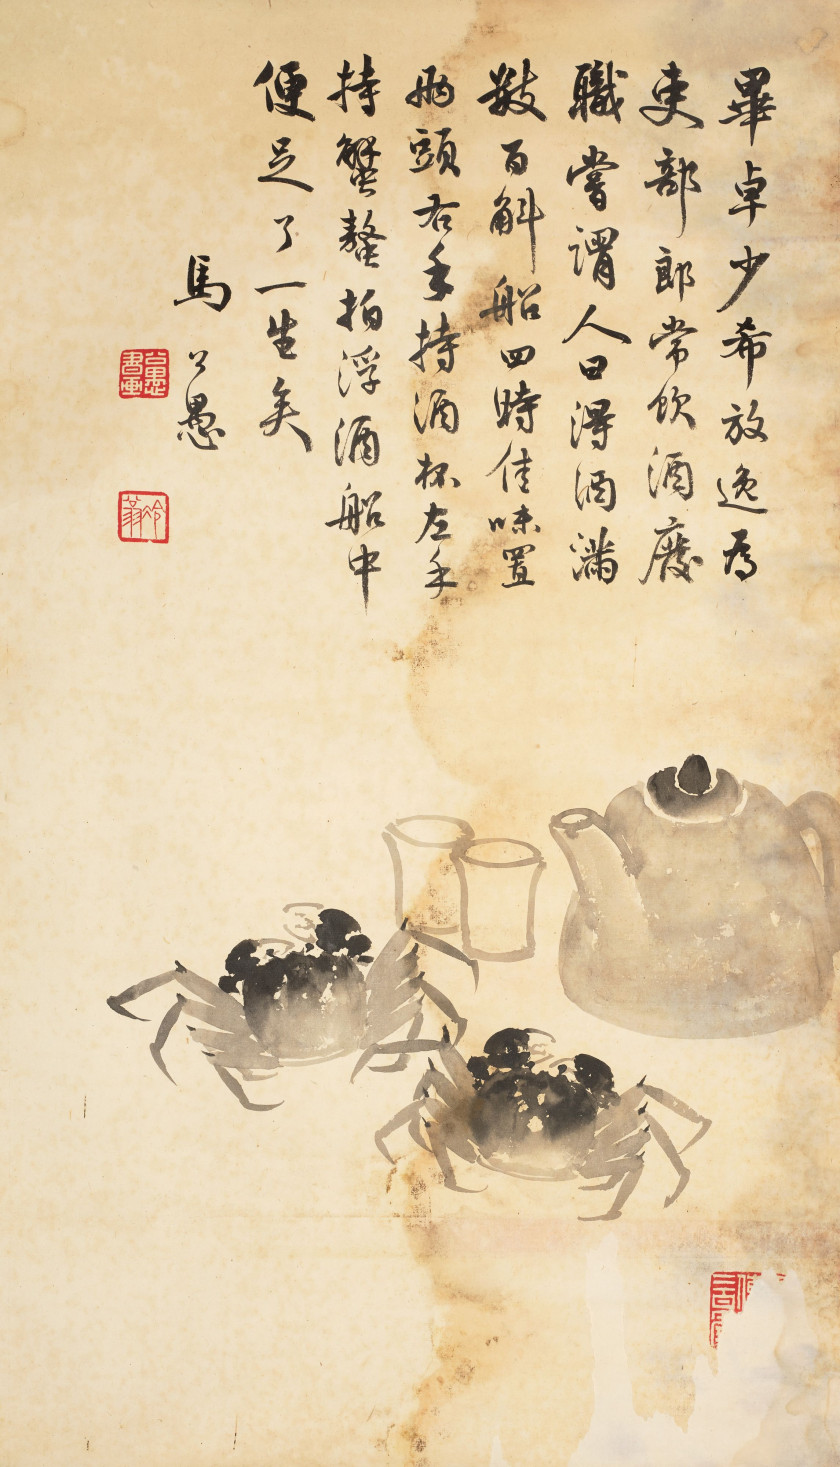 畢卓少希放逸為
吏部郎常飲酒廢
職嘗謂人曰得酒滿
數百斛船四時佳味置
兩頭右手持酒杯左手
持蟹螯拍浮酒船中
便足了一生矣
馬公愚
公愚書畫
冷翁